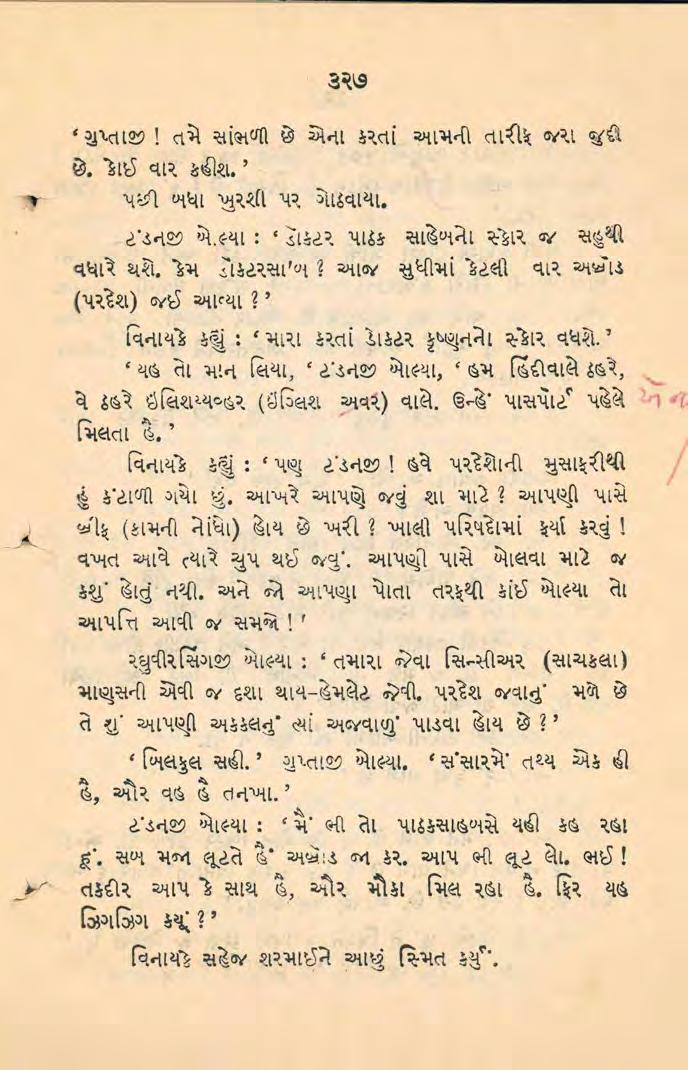 ૩૨૭
‘ગુપ્તાજી ! તમે સાંભળી છે એના કરતાં આમની તારીફ જરા જુદી
છે. કોઈ વાર કહીશ.’
પછી બધા ખુરશી પર ગોઠવાયા.
ટંડનજી બોલ્યા : ‘ડોકટર પાઠક સાહેબનો સ્કોર જ સહુથી
વધારે થશે. કેમ ડોકટરસા'બ ? આજ સુધીમાં કેટલી વાર અબ્રોડ
(પરદેશ) જઈ આવ્યા ?’
વિનાયકે કહ્યું : ‘મારા કરતાં ડોકટર કૃષ્ણનનો સ્કોર વધશે.’
‘યહ તો માન લિયા, ‘ ટંડનજી બોલ્યા, ‘ હમ હિંદીવાલે ઠહરે,
વે ઠહરે ઇંલિશય્યવ્હર (ઇંગ્લિશ અવર) વાલે. ઉન્હેં પાસપોર્ટ પહેલે
મિલતા હૈ.’
વિનાયકે કહ્યું : ‘પણ ટંડનજી ! હવે પરદેશોની મુસાફરીથી
હું કંટાળી ગયો છું. આખરે આપણે જવું શા માટે ? આપણી પાસે
બ્રીફ (કામની નોંધો) હોય છે ખરી ? ખાલી પરિષદોમાં ફર્યા કરવું !
વખત આવે ત્યારે ચુપ થઈ જવું. આપણી પાસે બોલવા માટે જ
કશું હોતું નથી. અને જો આપણા પોતા તરફથી કાંઈ બોલ્યા તો
આપત્તિ આવી જ સમજો !'
રઘુવીરસિંગજી બોલ્યા : ‘તમારા જેવા સિન્સીઅર (સાચકલા)
માણસની એવી જ દશા થાય–હેમલેટ જેવી. પરદેશ જવાનું મળે છે
તે શું આપણી અકકલનું ત્યાં અજવાળું પાડવા હોય છે ?’
‘બિલકુલ સહી.’ ગુપ્તાજી બોલ્યા. ‘સંસારમેં તથ્ય એક હી
હૈ, ઔર વહ હૈ તનખા.’
ટંડનજી બોલ્યા : ‘મૈં ભી તો પાઠકસાહબસે યહી કહ રહા
હૂં. સબ મજા લૂટતે હૈં અબ્રોડ જા કર. આપ ભી લૂટ લો. ભઈ !
તકદીર આપ કે સાથ હૈ, ઔર મૌકા મિલ રહા હૈ. ફિર યહ
ઝિગઝિગ કયૂં ?’
વિનાયકે સહેજ શરમાઈને આછું સ્મિત કર્યું.